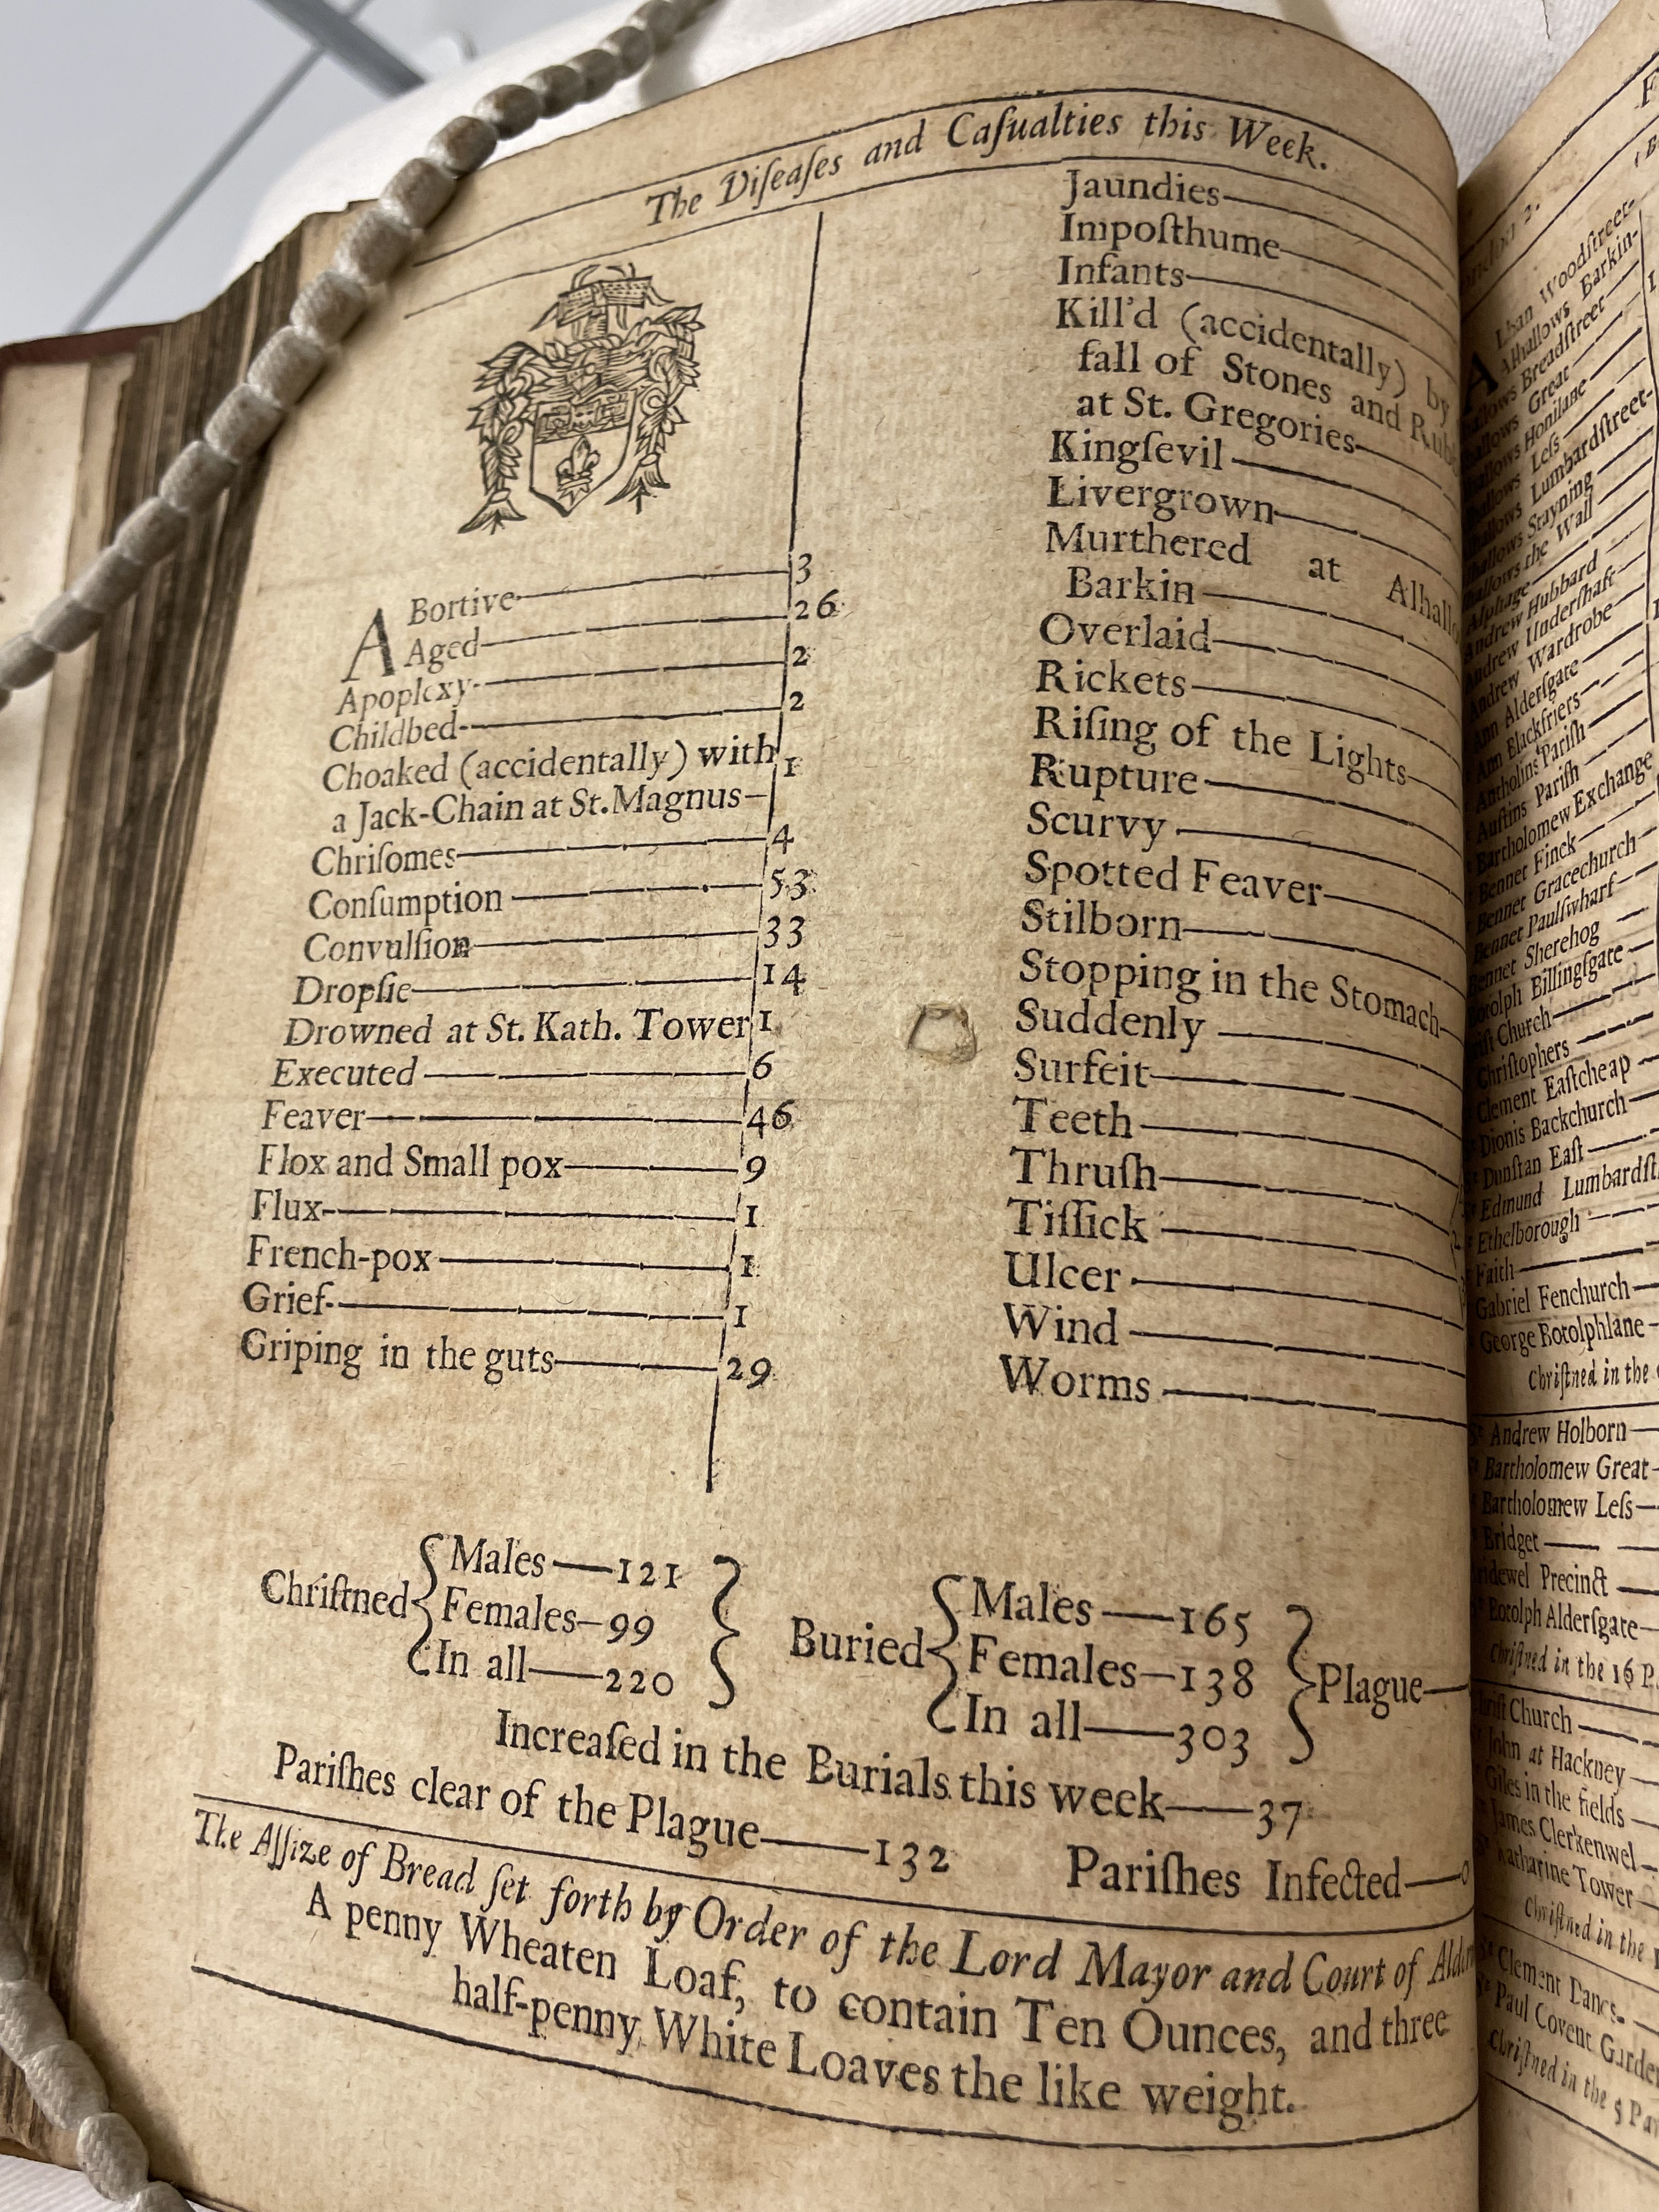 The Diſeaſes and Caſualties this Week.
ABortive 3
Aged 26
Apoplexy 2
Childbed 2
Choaked (accidentally) with
a Jack-Chain at St. Magnus 1
Chriſomes 4
Conſumption 53
Convulſion 33
Dropſie 14
Drowned at St. Kath. Tower 1
Executed 6
Feaver 46
Flox and Small pox 9
Flux 1
French-pox 1
Grief 1
Griping in the guts 29
Jaundies
Impoſthume
Infants
Kill'd (accidentally) by
fall of Stones and Rub
at St. Gregories
Kingſevil
Livergrown
Murthered at Alhallo
Barkin
Overlaid
Rickets
Riſing of the Lights
Rupture
Scurvy
Spotted Feaver
Stilborn
Stopping in the Stomach
Suddenly
Surfeit
Teeth
Thruſh
Tiſſick
Ulcer
Wind
Worms
Chriſtned { Males — 121
Females — 99
In all — 220 }
Buried { Males — 165
Females — 138
In all — 303 } Plague —
Increaſed in the Burials this week — 37
Pariſhes clear of the Plague — 132 Pariſhes Infected — 0
The Aſſize of Bread ſet forth by Order of the Lord Mayor and Court of Alder
A penny Wheaten Loaf, to contain Ten Ounces, and three
half-penny White Loaves the like weight.
Alban Woodſtreet
Alhallows Barkin
Breadſtreet
Great
Honilane
Leſs
Lumbardſtreet
Stayning
the Wall
Alphage
Andrew Hubbard
Andrew Underſhaft
Andrew Wardrobe
Ann Alderſgate
Ann Blackfriers
Antholins Pariſh
Auſtins Pariſh
Bartholomew Exchange
Bennet Finck
Bennet Gracechurch
Bennet Paulſwharf
Bennet Sherehog
Botolph Billingſgate
Church
Chriſtophers
Clement Eaſtcheap
Dionis Backchurch
Dunſtan Eaſt
Edmund Lumbardſt
Ethelborough
Faith
Gabriel Fenchurch
George Botolphlane
Chriſtned in the
Andrew Holborn
Bartholomew Great
Bartholomew Leſs
Bridget
Precinct
Botolph Alderſgate
Chriſtned in the 16 P
Church
John at Hackney
Giles in the fields
James Clerkenwel
Katharine Tower
Chriſtned in the
Clement Danes
Paul Covent Garden
Chriſtned in the 5 Pa